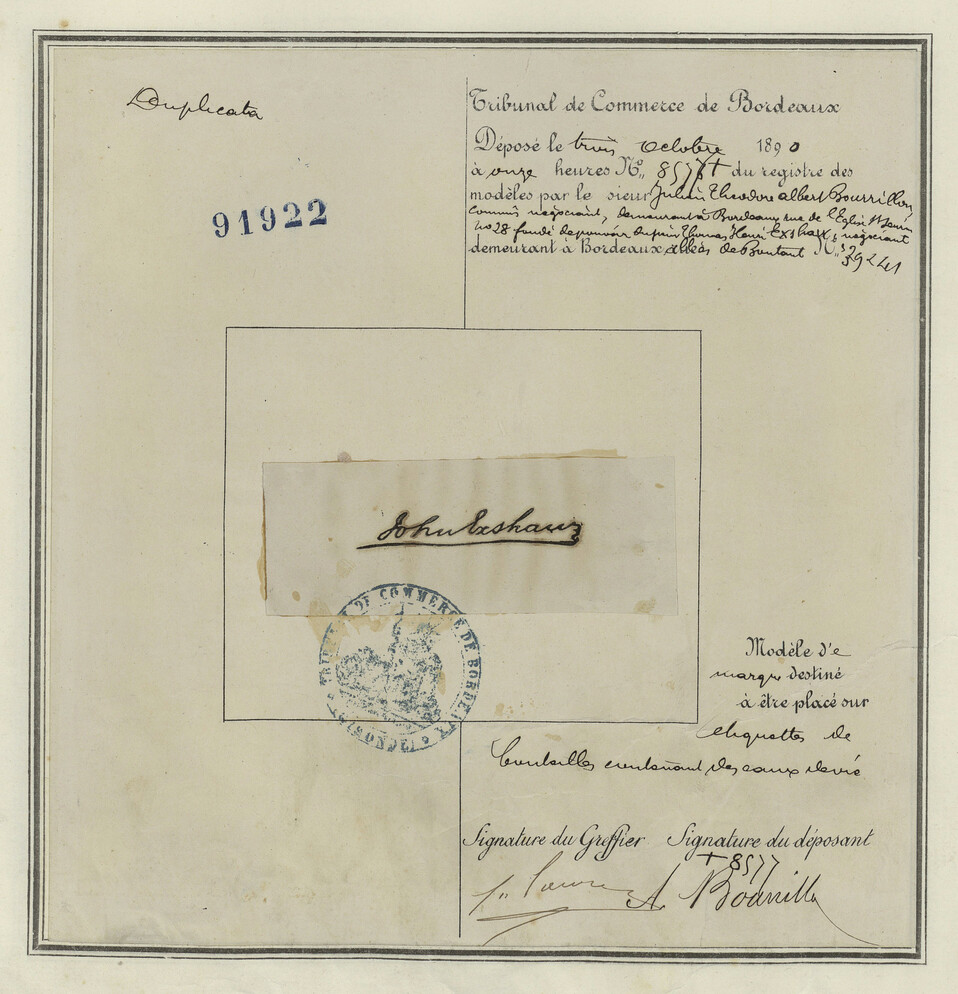 Duplicata
91922
Tribunal de Commerce de Bordeaux
Déposé le trois octobre 1890
à onze heures N° 8577 + du registre des
modèles par le sieur Julien Théodore albert Bourrillon
Commis négociant, demeurant à Bordeaux rue de l'Eglise St Seurin
no 28 fondé de pouvoir du sieur Thomas Henri Exshaw, négociant
demeurant à Bordeaux allées de Boutaut N°
John Exshaw
TRIBUNAL DE COMMERCE DE BORDEAUX
(GIRONDE)
Modèle d'e
marque destiné
à être placé sur
etiquettes de
bouteilles contenant des eaux de vie
Signature du Greffier Signature du déposant
+ 8577
A. Bourrillon